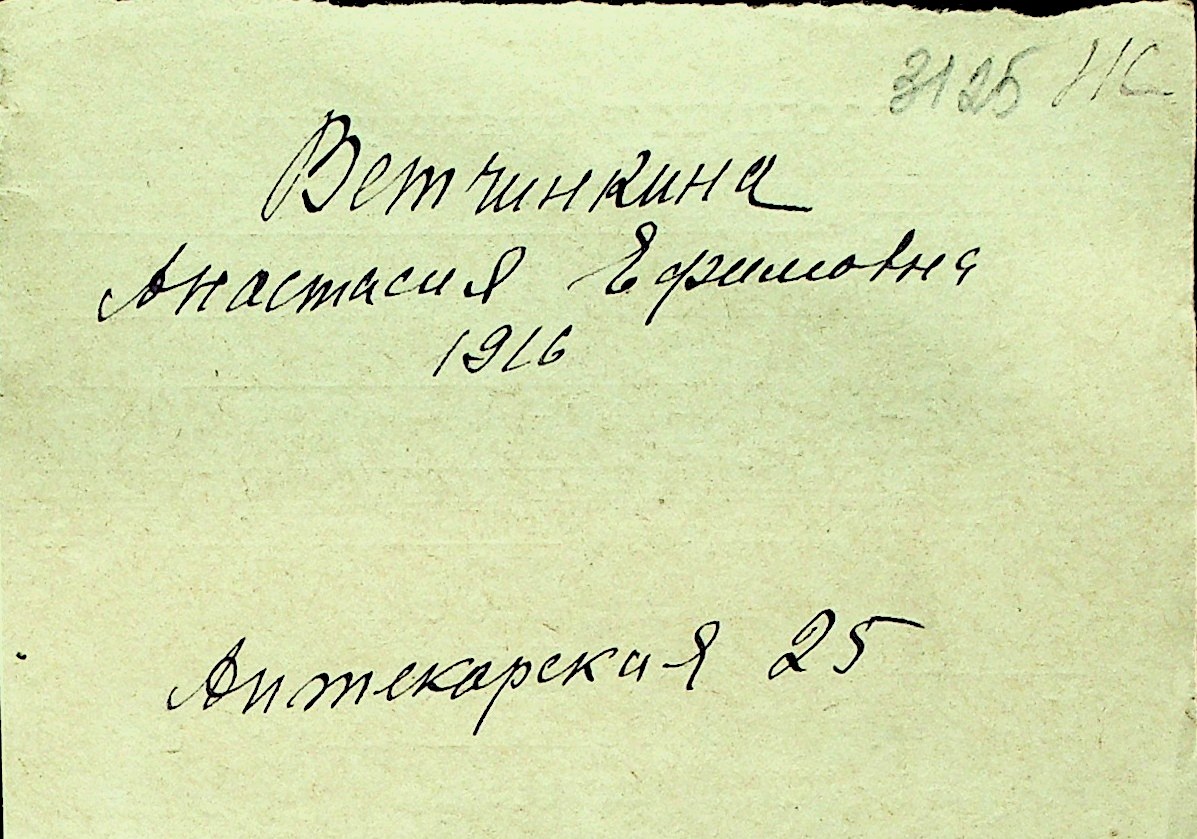 3125 НС
Ветчинкина
Анастасия Ефимовна
1916
Аптекарская 25